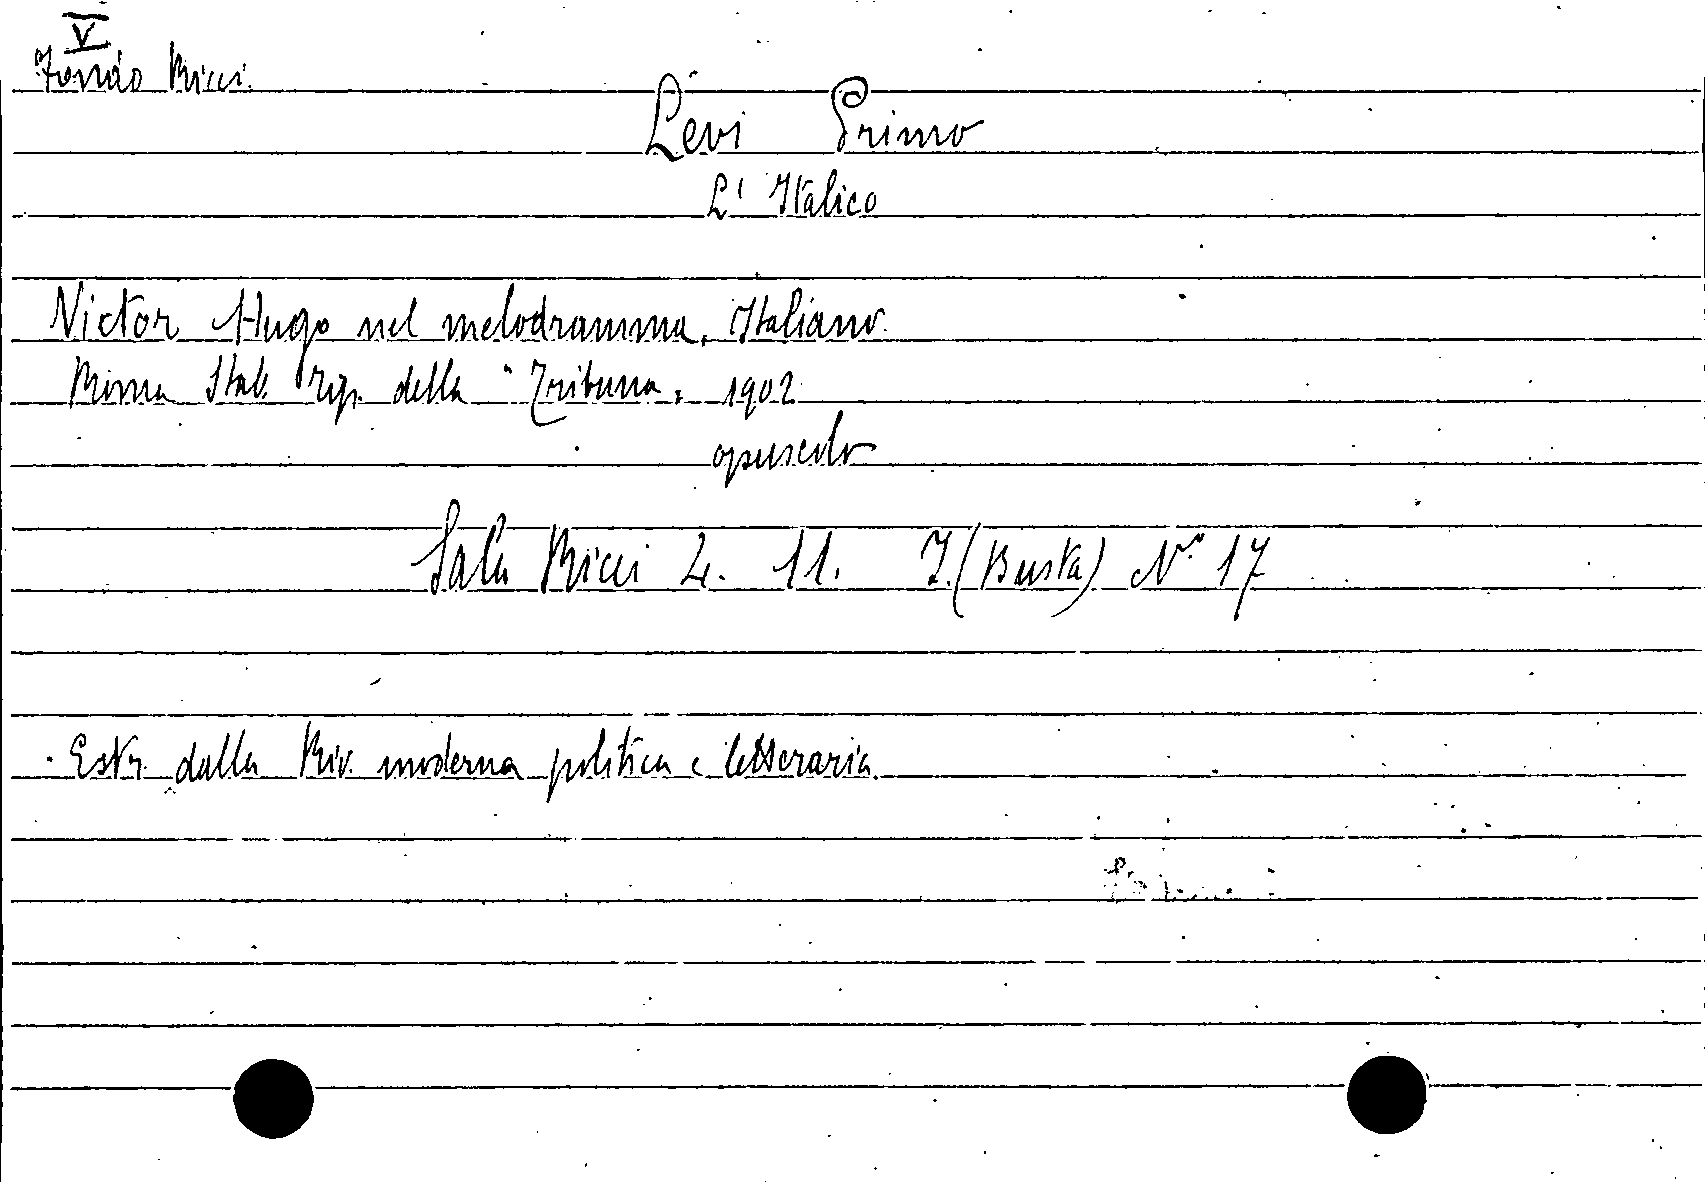 V
Fondo Ricci.
Levi Primo
L' Italico
Victor Hugo nel melodramma Italiano.
Roma Stab. Tip. della "Tribuna" 1902
opuscolo
Sala Ricci 4. 11. I. (Busta) N° 17
Estr. dalla Riv. moderna politica e letteraria.